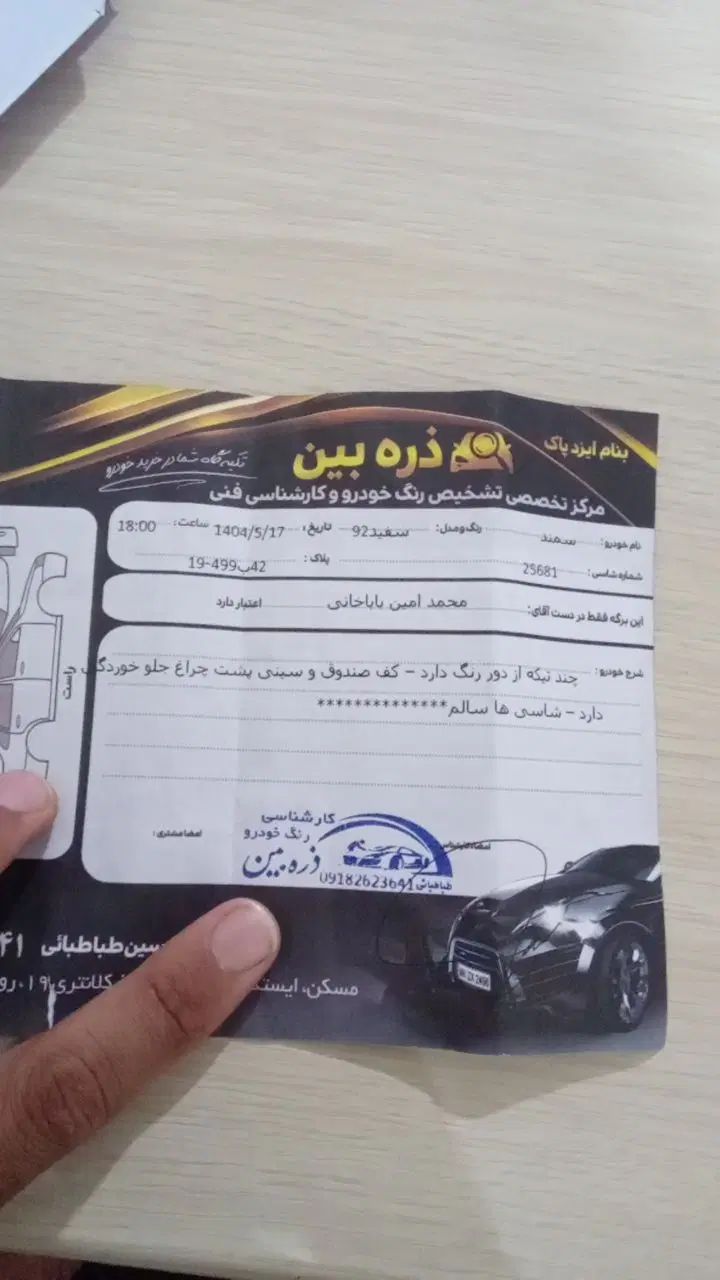 بنام ایزد پاک
ذره بین
تکیه گاه شما در خرید خودرو
مرکز تخصصی تشخیص رنگ خودرو و کارشناسی فنی
نام خودرو: سمند رنگ و مدل: سفید92 تاریخ: 1404/5/17 ساعت: 18:00
شماره شاسی: 25681 پلاک: 42ب499-19
این برگه فقط در دست آقای: محمد امین باباخانی اعتبار دارد
شرح خودرو: چند تیکه از دور رنگ دارد – کف صندوق و سینی پشت چراغ جلو خوردگی
دارد – شاسی ها سالم**************
راست
امضا کارشناس
امضا مشتری:
کارشناسی
رنگ خودرو
ذره بین
طباطبائی 09182623641
سین طباطبائی ۴۱
مسکن، کلانتری ۱۹، رو